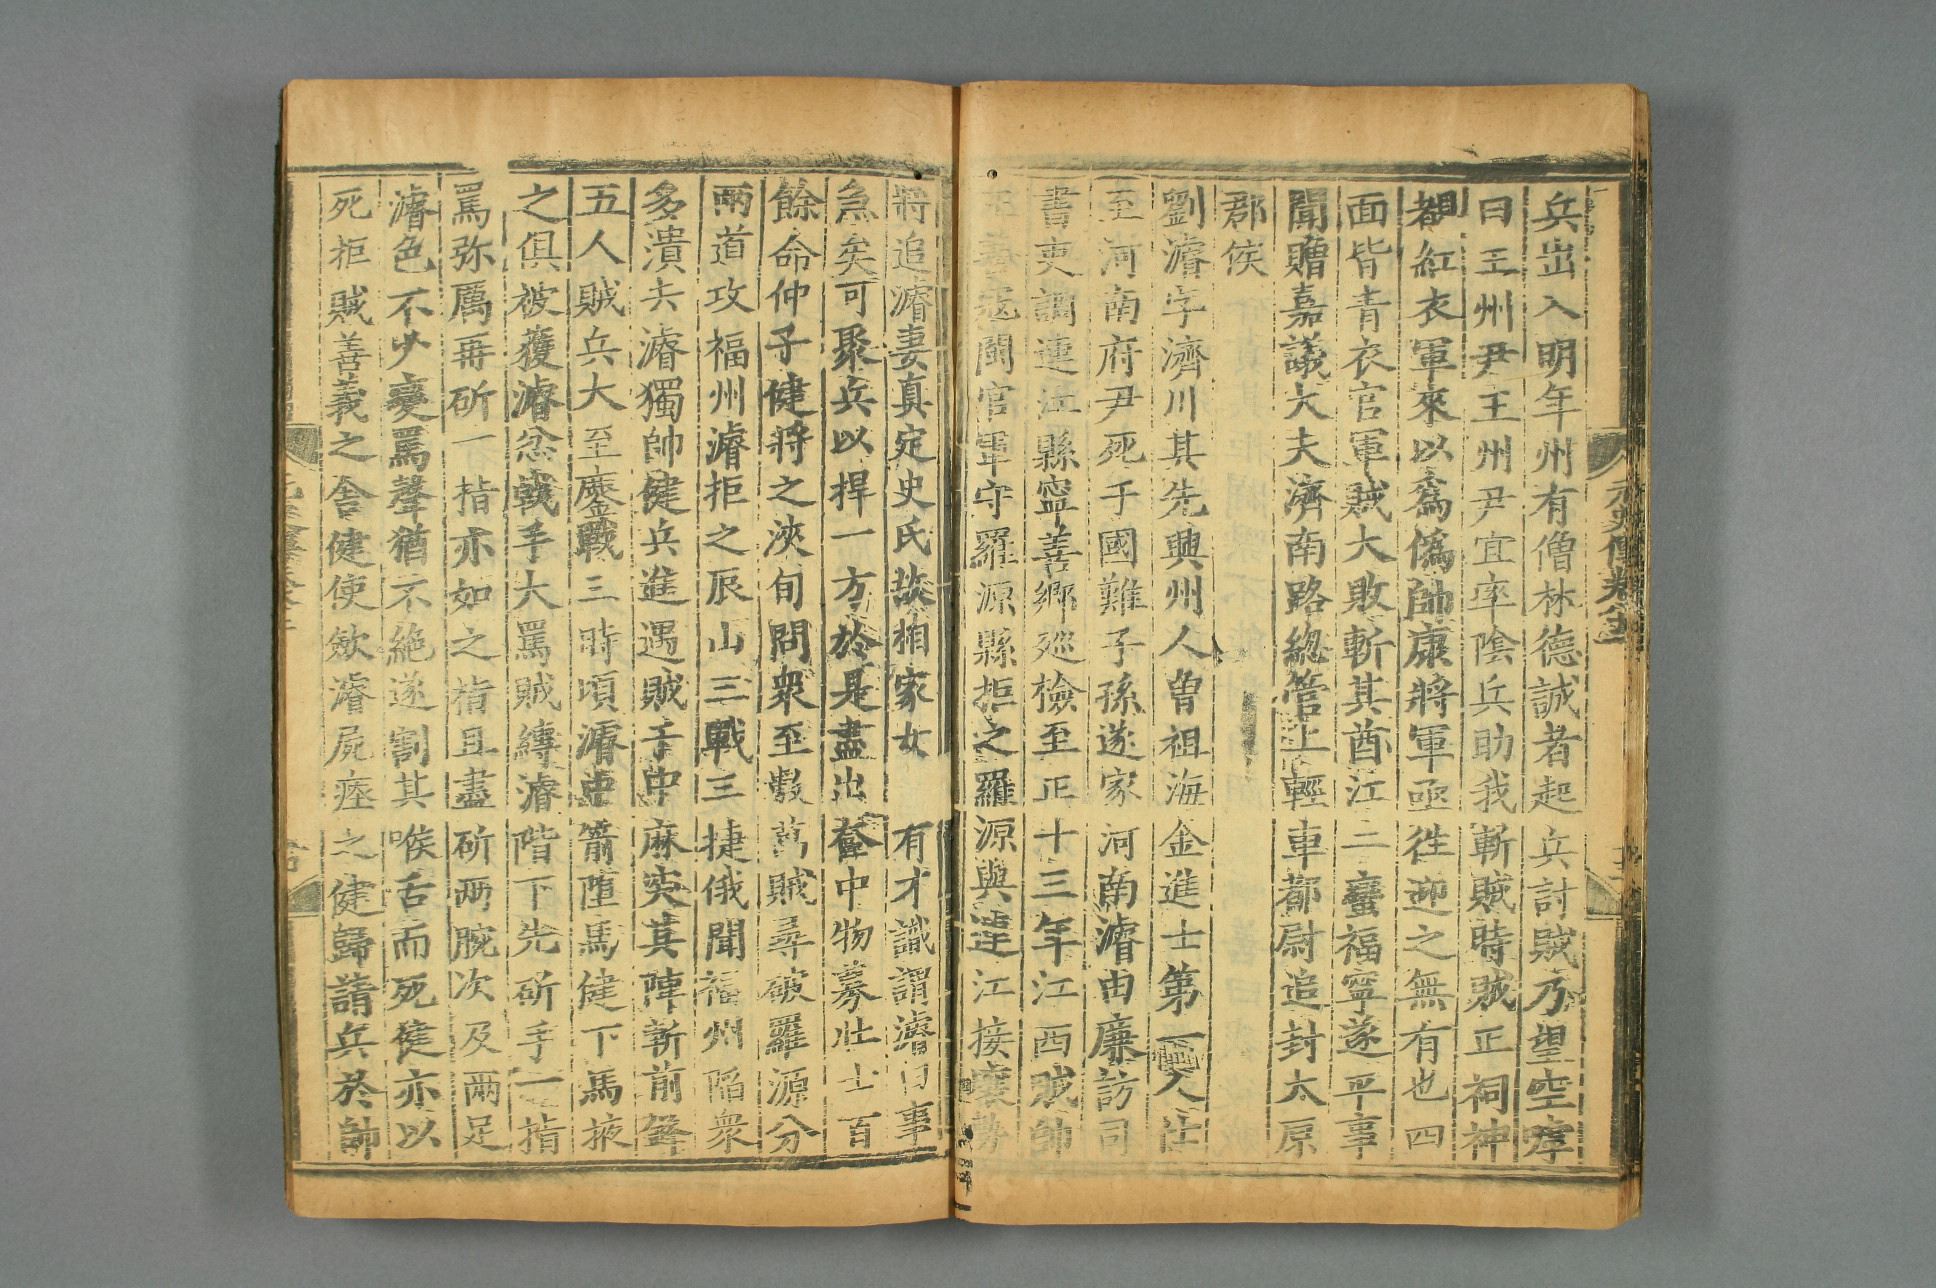 兵出入明年州有僧林德誠者起兵討賊乃望空呼
曰王州尹王州尹宜率陰兵助我斬賊時賊正祠神
覩紅衣軍來以爲僞帥康將軍亟徃迎之無有也四
面皆青衣官軍賊大敗斬其酋江二蠻福寧遂平事
聞贈嘉議大夫濟南路總管上輕車都尉追封太原
郡侯
劉濬字濟川其先興州人曾祖海金進士第一人仕
至河南府尹死于國難子孫遂家河南濬由廉訪司
書吏調連江縣寧善鄉廵檢至正十三年江西賊帥
王善寇閩官軍守羅源縣拒之羅源與連江接壤勢
將追濬妻真定史氏故相家女有才識謂濬曰事
急矣可聚兵以捍一方於是盡出奩中物募壯士百
餘命仲子健將之浹旬間衆至數萬賊尋破羅源分
兩道攻福州濬拒之辰山三戰三捷俄聞福州陷衆
多潰去濬獨帥健兵進遇賊于中麻突其陣斬前鋒
五人賊兵大至鏖戰三時頃濬中箭墮馬健下馬掖
之俱被獲濬忿戟手大罵賊縛濬階下先斫手一指
罵弥厲再斫一指亦如之指且盡斫兩腕次及兩足
濬色不少變罵聲猶不絶遂割其喉舌而死健亦以
死拒賊善義之舍健使斂濬屍瘞之健歸請兵於帥